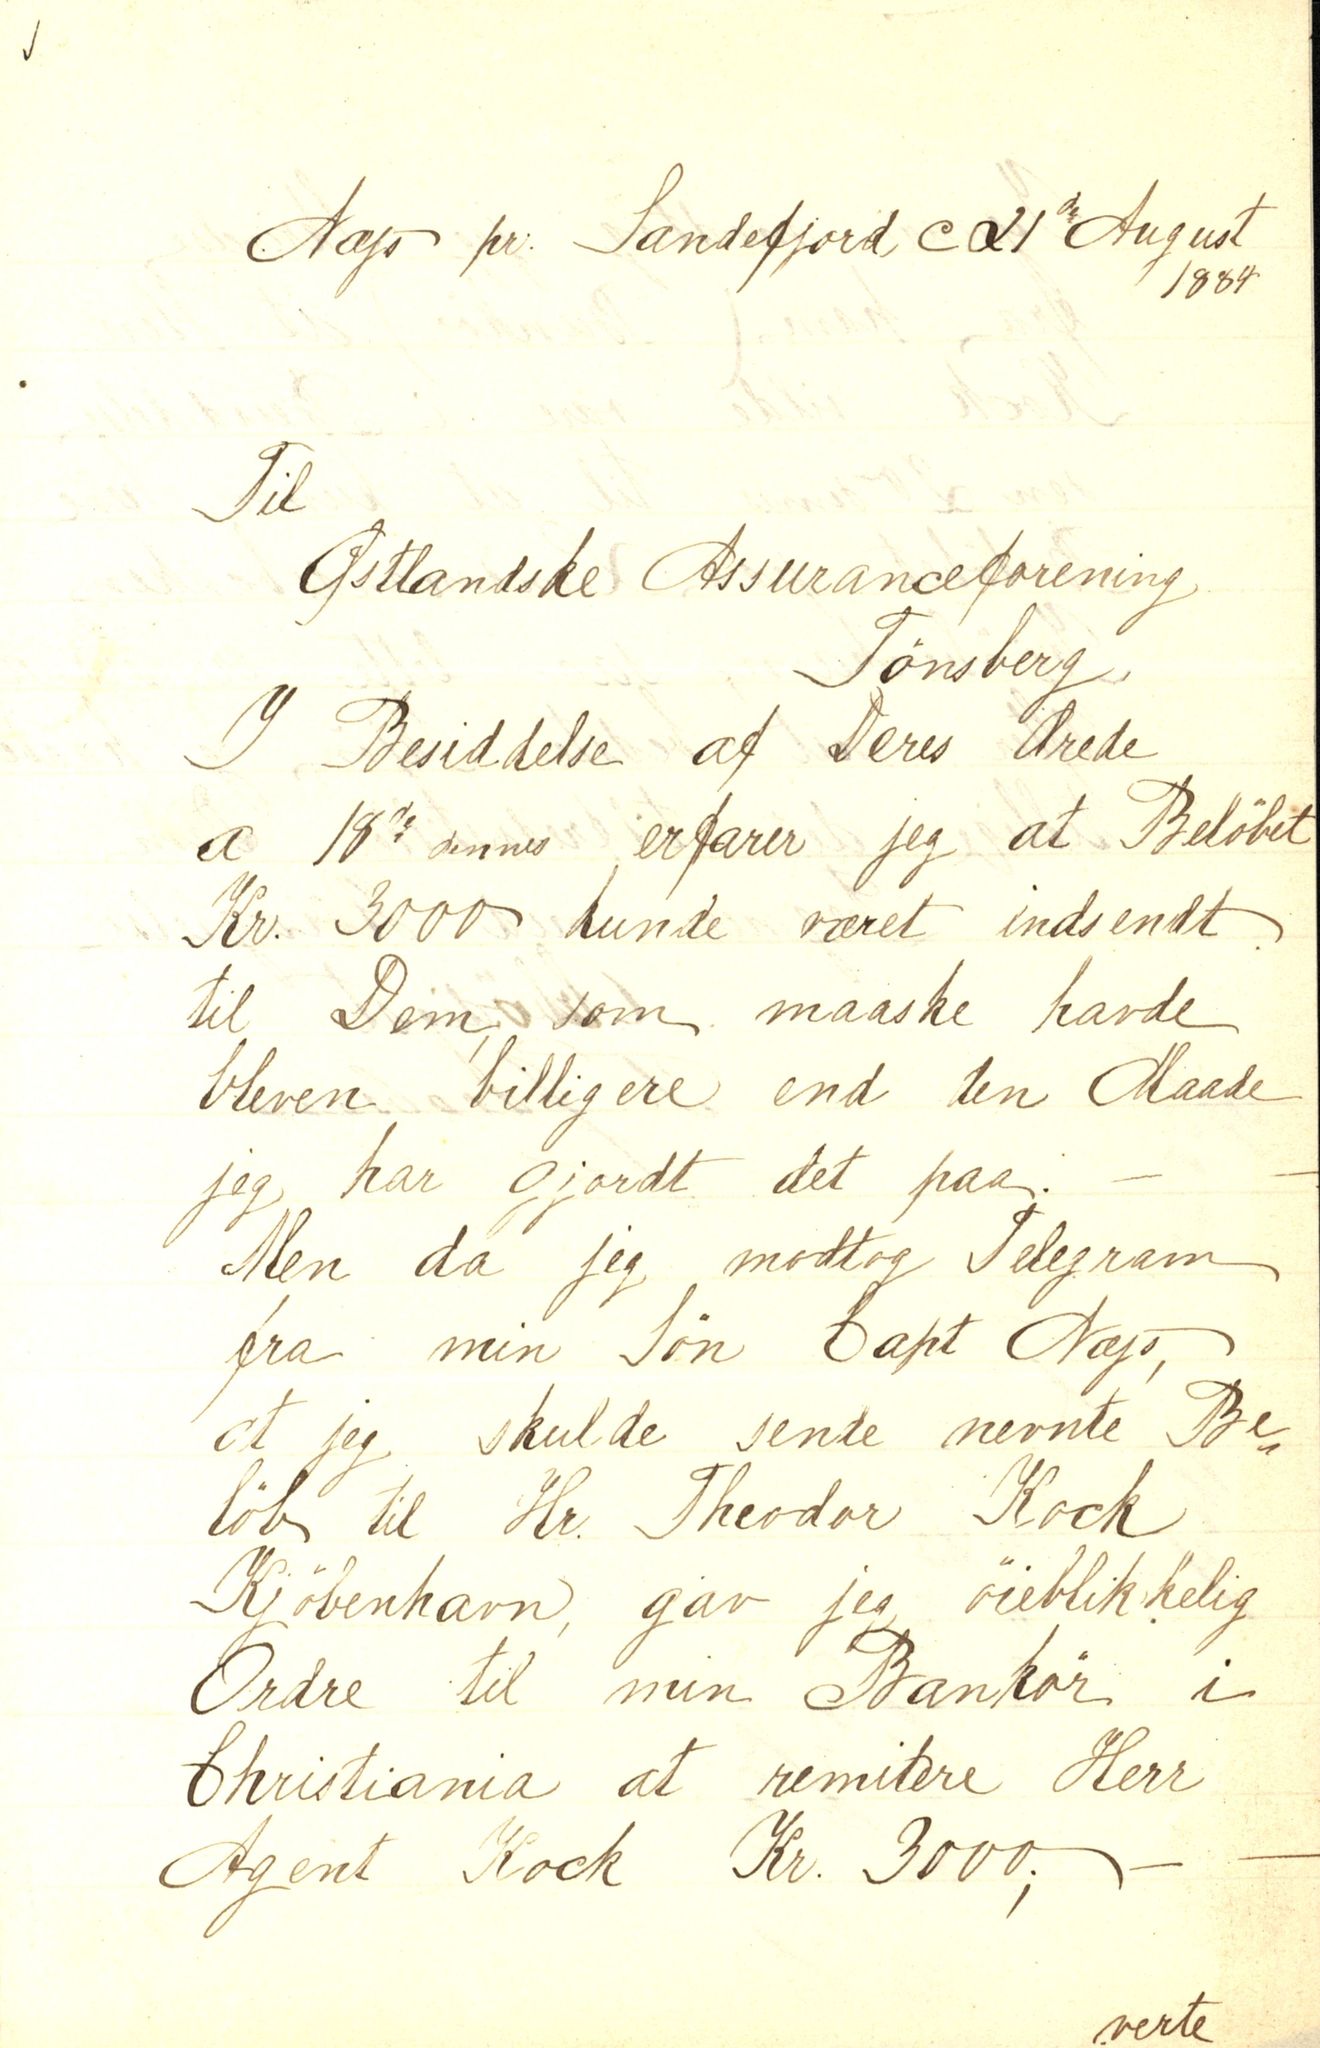 Næs pr. Sandefjord d 21de August
1884
Til
Østlandske Assuranceforening
Tönsberg,
I Besiddelse af Deres Ærede
a 18de dennes erfarer jeg at Belöbet
Kr. 3000 kunde været indsendt
til Dem, som maaske havde
bleven billigere end den Maade
jeg har gjordt det paa. —
Men da jeg modtog Telegram
fra min Sön Capt Næs,
at jeg skulde sende nevnte Be-
löb til Hr. Theodor Kock
Kjöbenhavn, gav jeg öieblikkelig
Ordre til min Bankör i
Christiania at remitere Herr
Agent Kock Kr. 3000, —
verte